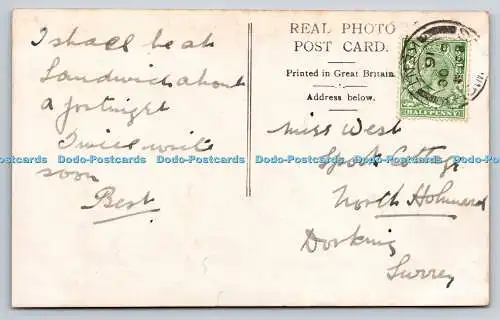 I shall be at
Sandwich about
a fortnight
I will write
soon
Best
REAL PHOTO
POST CARD.
Printed in Great Britain
Address below.
HALFPENNY
Miss West
Spook Cottage
North Holmwood
Dorking
Surrey
Dodo-Postcards Dodo-Postcards Dodo-Postcards Dodo-Postcards Dodo-Postcards Dodo-Postcards